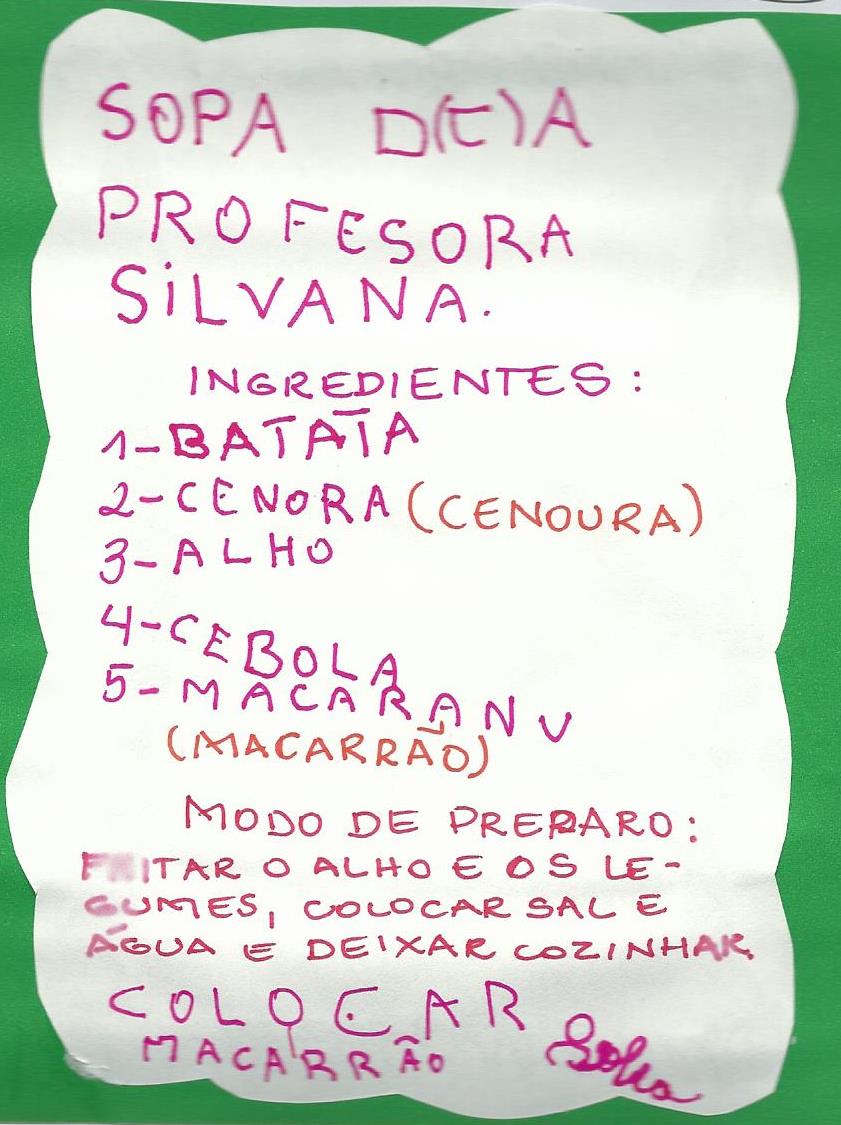 SOPA D(E)A
PROFESORA
SILVANA.
INGREDIENTES:
1-BATATA
2-CENORA (CENOURA)
3-ALHO
4-CEBOLA
5-MACARANU
(MACARRÃO)
MODO DE PREPARO:
FRITAR O ALHO E OS LE-
GUMES, COLOCAR SAL E
ÁGUA E DEIXAR COZINHAR,
COLOCAR
MACARRÃO